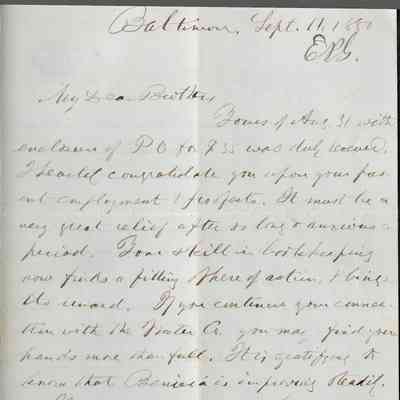 Baltimore, Sept. 11, 1880
My Dear Brother
Yours of Aug. 31 with
enclosure of P O for $35 was duly received.
I heartily congratulate you upon your pres
ent employment & prospects. It must be a
very great relief after so long & anxious a
period. Your skill in bookkeeping
now finds a fitting sphere of action, & brings
its reward. If you continue your connec
tion with the Water Co. you may find your
hands more than full. It is gratifying to
know that Benicia is improving steadily.